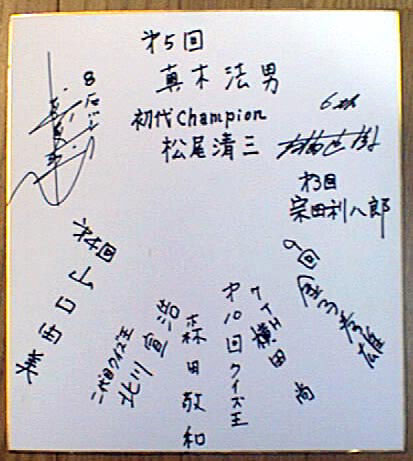 第5回
真木法男
初代Champion
松尾清三
6th
第3回
宗田利八郎
第4回
山口
9回
金子孝雄
7TH
横田尚
第10回クイズ王
森田敬和
二代目クイズ王
北川宣浩
8